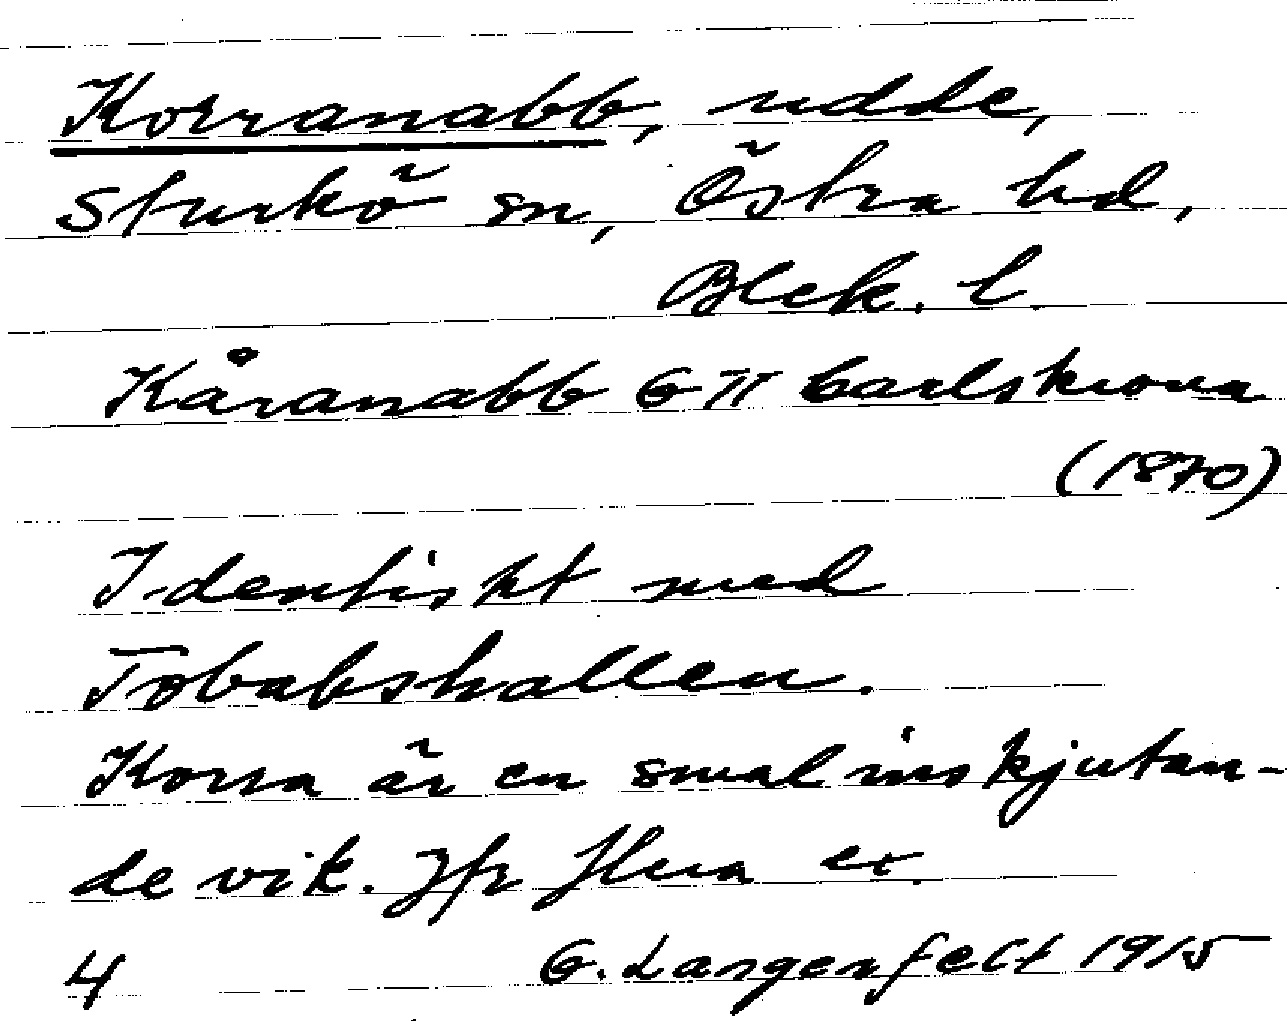 Korranabb, udde,
Sturkö sn, Östra hd,
Blek. l.
Kåranabb GK Carlskrona
(1870)
Identiskt med
Tobakshallen.
Korra är en smal inskjutan-
de vik. Jfr flera ex.
4 G. Langenfelt 1915